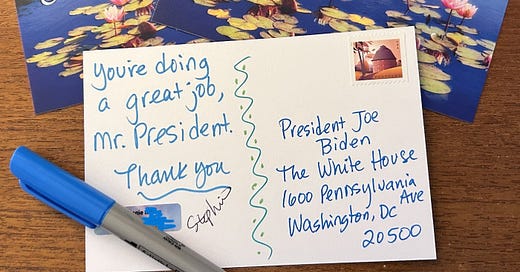 You're doing
a great job,
Mr. President.
Thank you
President Joe
Biden
The White House
1600 Pennsylvania
Ave
Washington, DC
20500